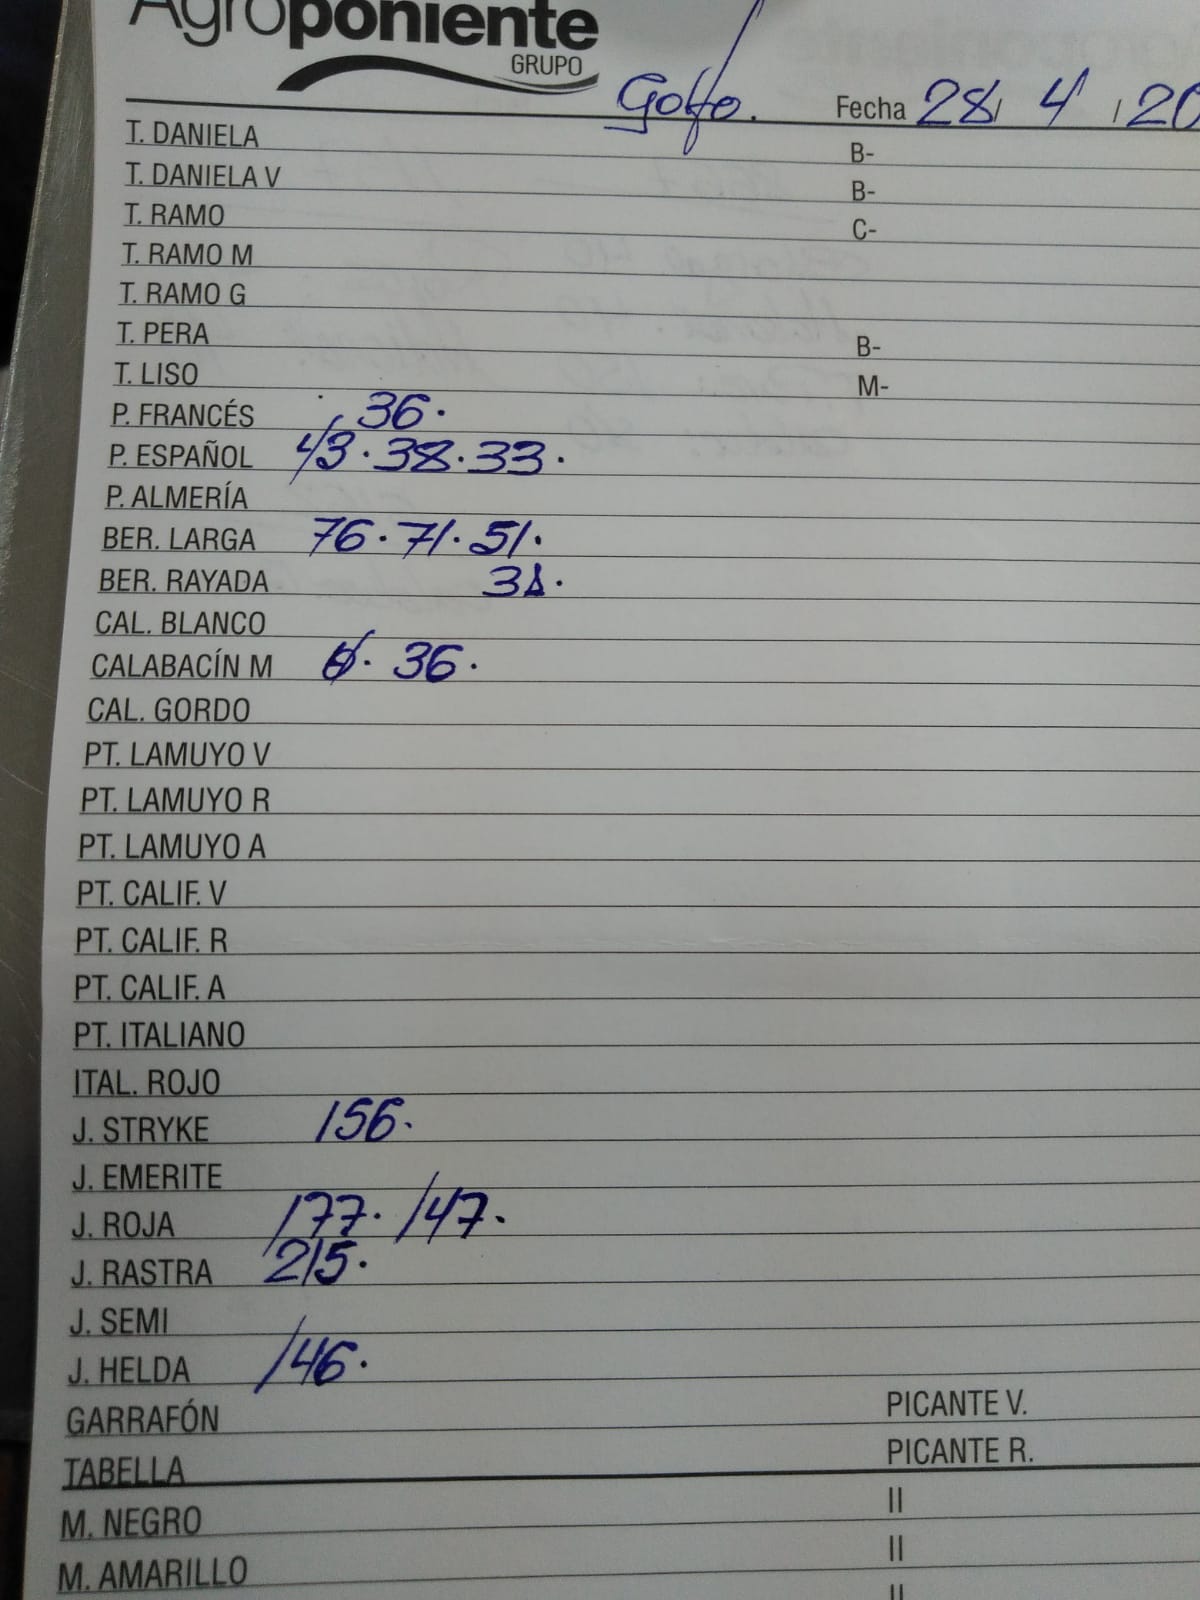 Agroponiente
GRUPO
Golfo. Fecha 28/ 4 / 20
T. DANIELA B-
T. DANIELA V B-
T. RAMO C-
T. RAMO M
T. RAMO G
T. PERA B-
T. LISO M-
P. FRANCÉS 36.
P. ESPAÑOL 43. 38. 33.
P. ALMERÍA
BER. LARGA 76. 71. 51.
BER. RAYADA
CAL. BLANCO
CALABACÍN M 36.
CAL. GORDO
PT. LAMUYO V
PT. LAMUYO R
PT. LAMUYO A
PT. CALIF. V
PT. CALIF. R
PT. CALIF. A
PT. ITALIANO
ITAL. ROJO
J. STRYKE 156.
J. EMERITE
J. ROJA 177. 147.
J. RASTRA 215.
J. SEMI
J. HELDA 146.
GARRAFÓN PICANTE V.
TABELLA PICANTE R.
M. NEGRO II
M. AMARILLO II
II